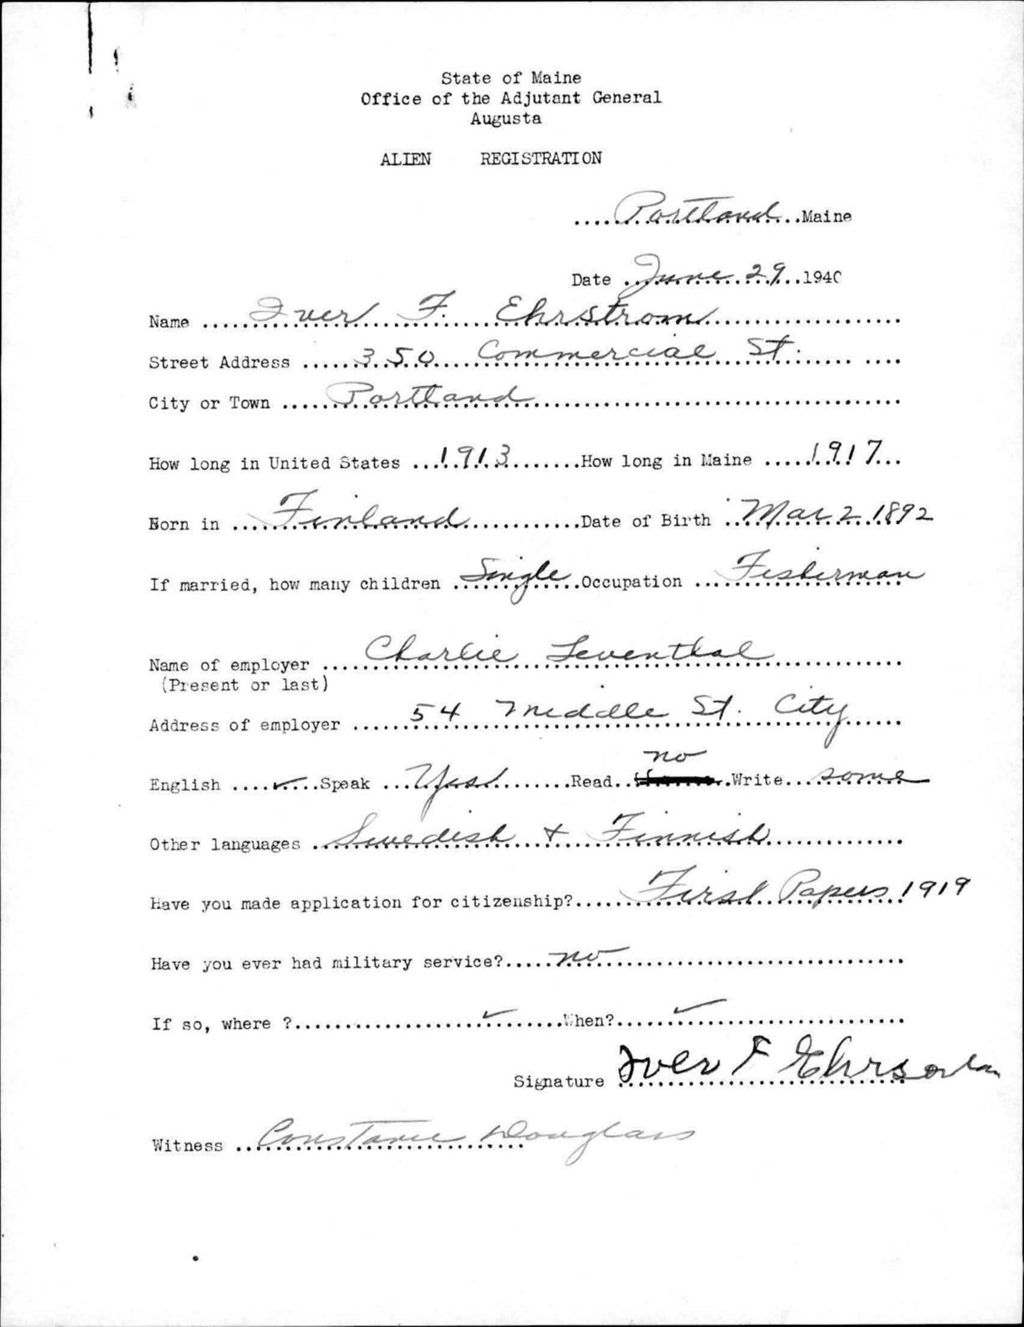 State of Maine
Office of the Adjutant General
Augusta
ALIEN REGISTRATION
.....Portland...Maine
Date ...June 29...1940
Name ......Iver F. Ehrstrom......
Street Address ......350 Commercial St.......
City or Town ......Portland......
How long in United States ...1913.......How long in Maine .....1917...
Born in ....Finland............Date of Birth ..Mar 2 1892
If married, how many children .Single.Occupation ...Fisherman
Name of employer ....Charlie Leventhal......
(Present or last)
Address of employer ......54 Middle St. City......
no
English ....✓...Speak ...Yes.........Read.........Write...some
Other languages ..Swedish + Finnish......
Have you made application for citizenship?.....First Papers 1919
Have you ever had military service?.....no......
If so, where ?......✓.......When?.....✓......
Signature Iver F Ehrs
Witness ..Constance Douglass